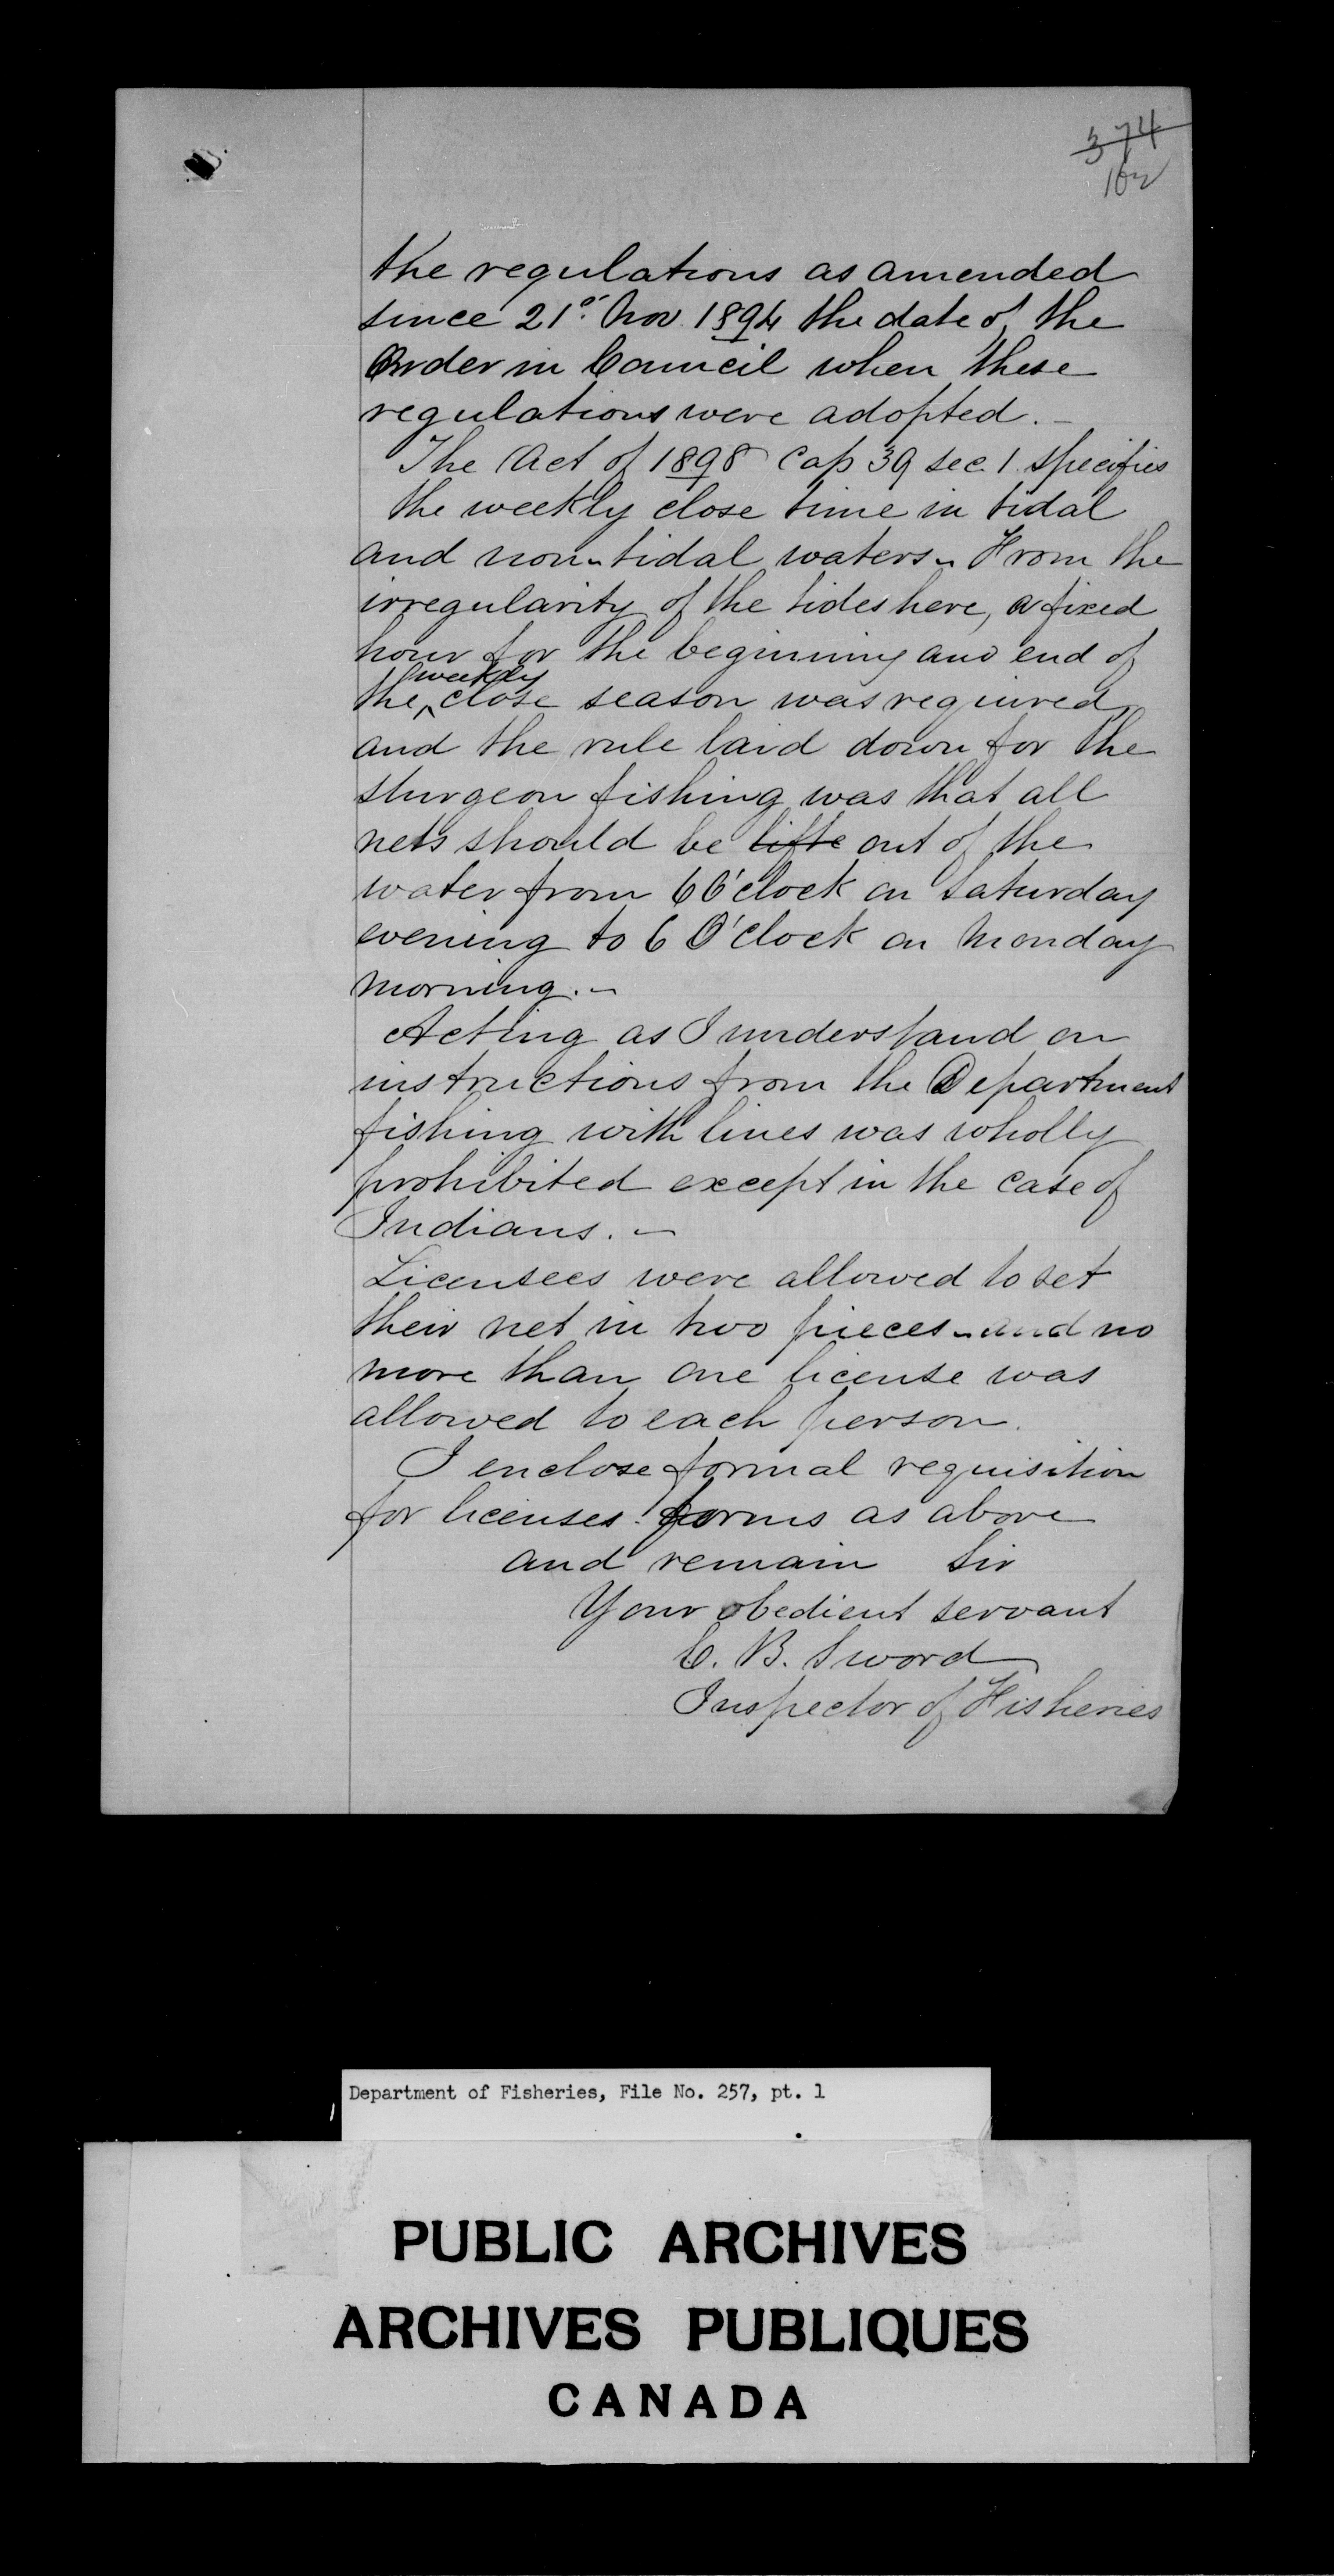 374
162
the regulations as amended
since 21st Nov. 1894 the date of the
Order in Council when these
regulations were adopted. -
The Act of 1898 Cap 39 sec. 1. specifies
the weekly close time in tidal
and non-tidal waters - From the
irregularity of the tides here, a fixed
hour for the beginning and end of
the weekly close season was required,
and the rule laid down for the
sturgeon fishing was that all
nets should be lifte out of the
water from 6 O'clock on Saturday
evening to 6 O'clock on Monday
morning. -
Acting as I understand on
instructions from the Department
fishing with lines was wholly
prohibited except in the case of
Indians. -
Licensees were allowed to set
their net in two pieces - and no
more than one license was
allowed to each person.
I enclose formal requisition
for licenses forms as above
and remain Sir
Your obedient servant
C. B. Sword
Inspector of Fisheries
Department of Fisheries, File No. 257, pt. 1
PUBLIC ARCHIVES
ARCHIVES PUBLIQUES
CANADA